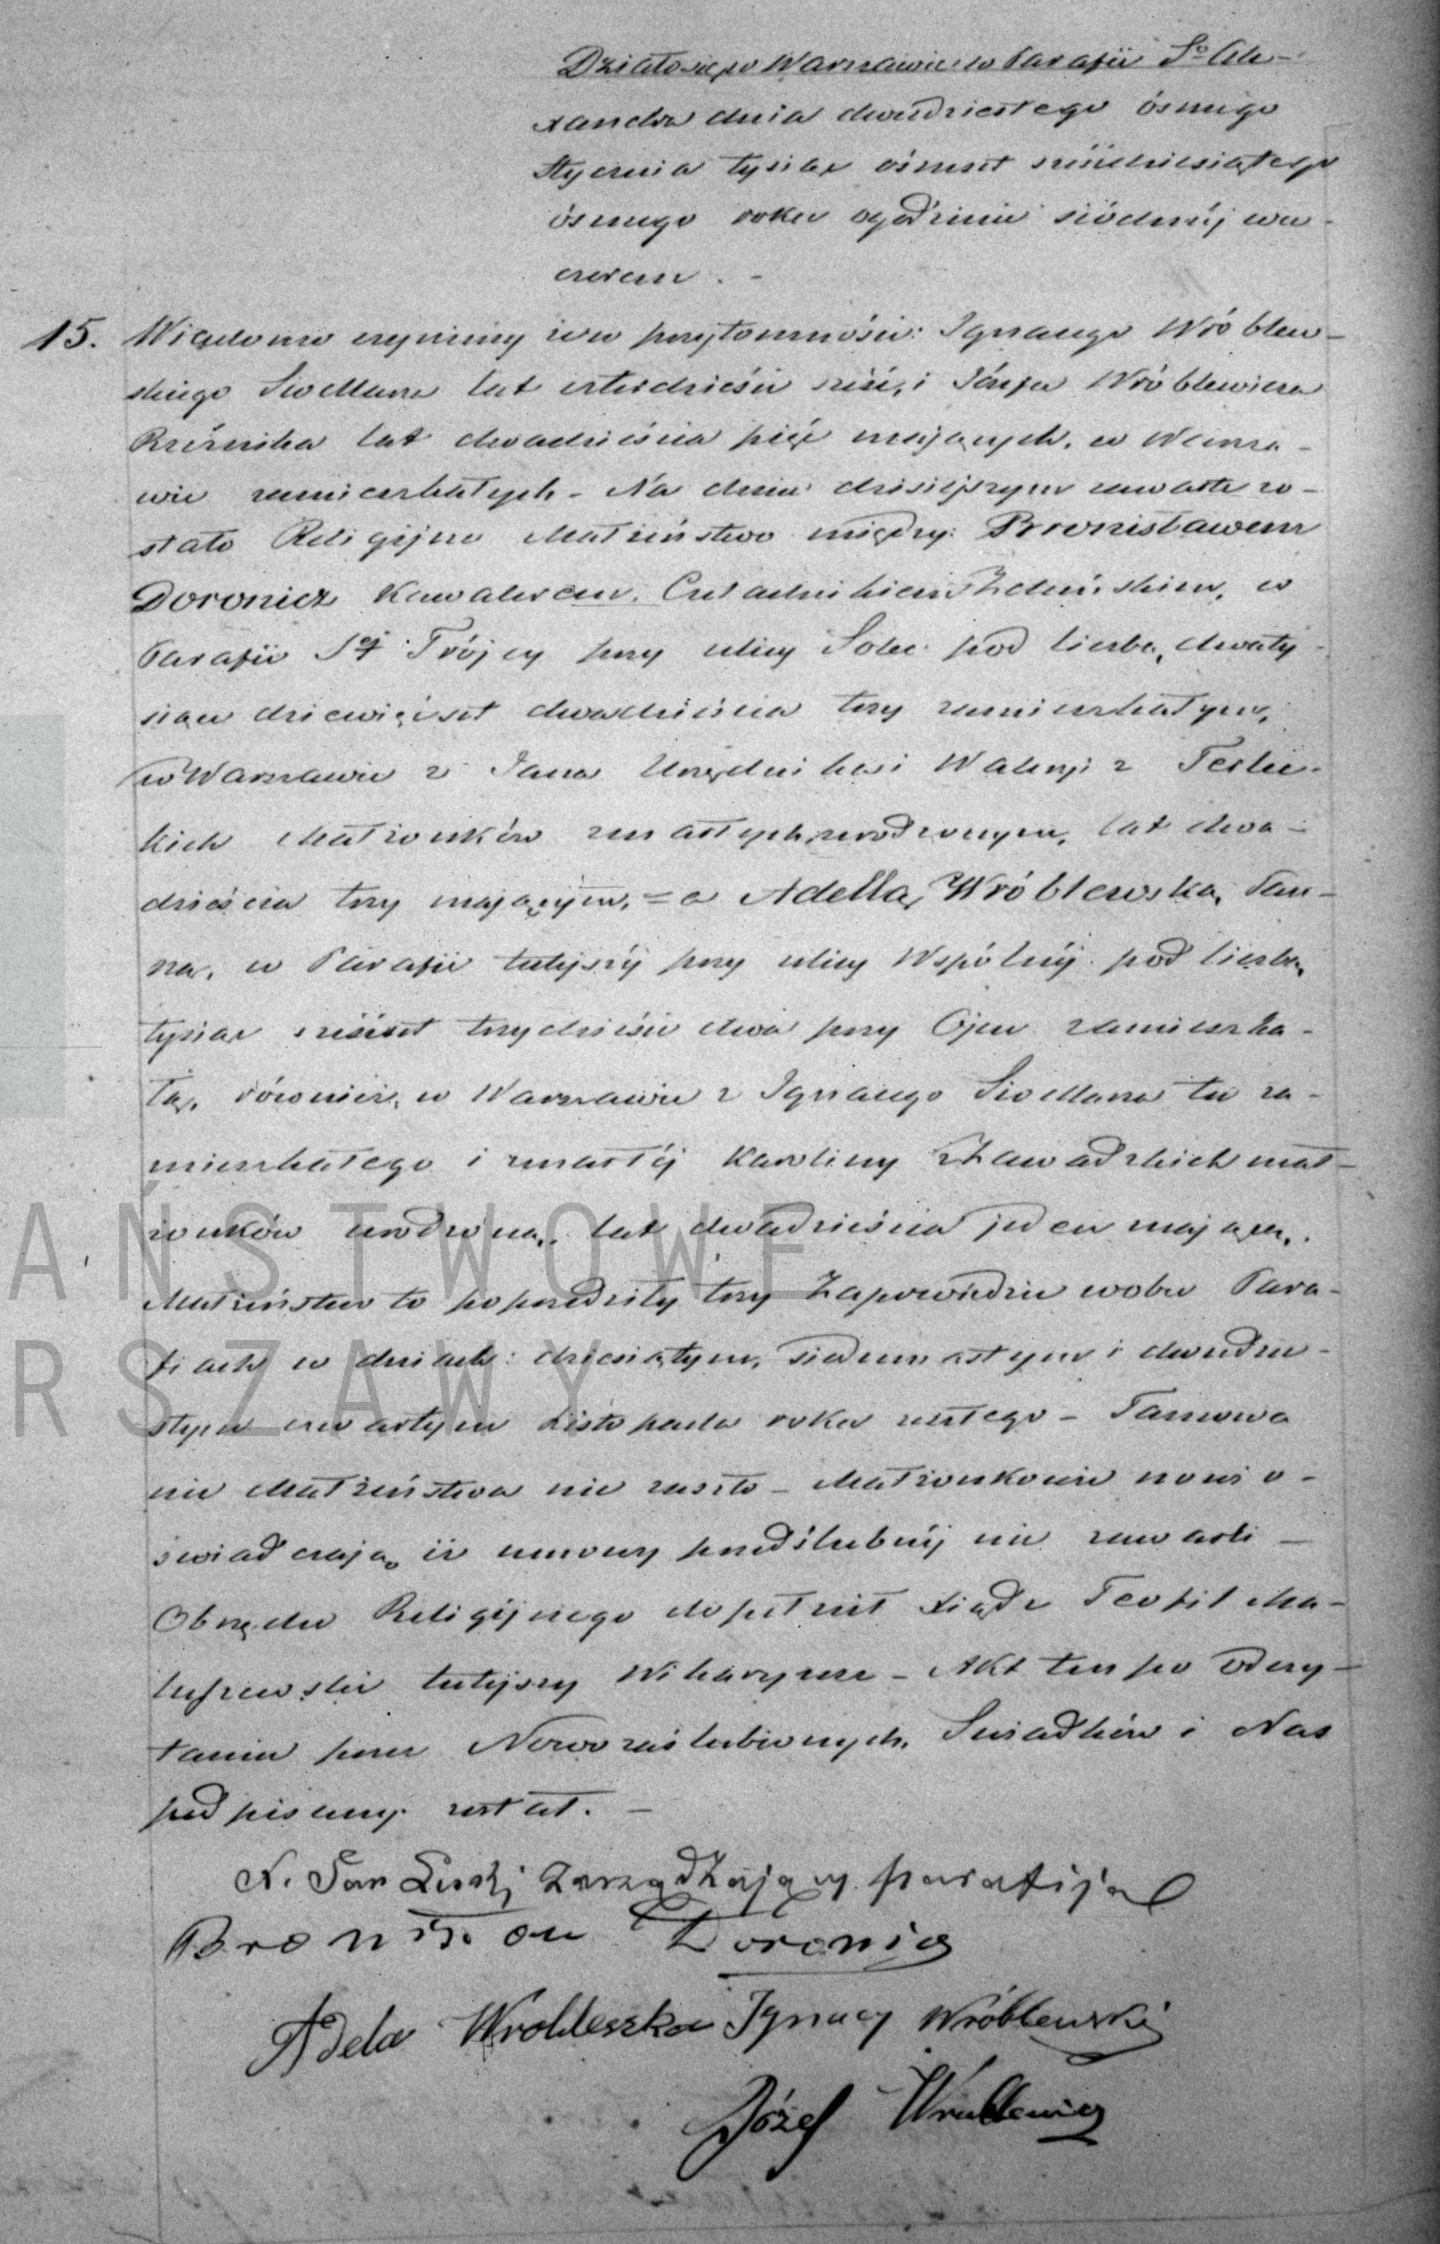 Działo się w Warszawie w Parafii Sgo Ale-
xandra dnia dwudziestego ósmego
Stycznia tysiąc ośmset sześćdziesiątego
ósmego roku o godzinie siódméj wie-
czorem. -
15. Wiadomo czynimy iż w przytomności: Ignacego Wróblew-
skiego Siodlarza lat czterdzieści sześć, i Józefa Wróblewicza
Rzeźnika lat dwadzieścia pięć mających, w Warsza-
wie zamieszkałych - Na dniu dzisiejszym zawarte zo-
stało Religijne Małżeństwo między: Bronisławem
Doronicz Kawalerem, Czeladnikiem Zduńskim, w
Parafii Sej Trójcy przy ulicy Solec pod liczbą dwa ty-
siące dziewięćset dwadzieścia trzy zamieszkałym,
w Warszawie z Jana Urzędnika i Waleryi z
kich Małżonków zmarłych urodzonym, lat dwa-
dzieścia trzy mającym, = a Adellą Wróblewską, Pan-
ną, w Parafii tutejszéj przy ulicy Wspólnéj pod liczbą
tysiąc sześćset trzydzieści dwa przy Ojcu zamieszka-
łą, również w Warszawie z Ignacego Siodlarza tu za-
mieszkałego i zmarłéj Karoliny z Zawadzkich mał-
żonków urodzoną, lat dwadzieścia jeden mającą.
Małżeństwo to poprzedziły trzy Zapowiedzie w obu Para-
fiach w dniach: dziesiątym, siedemnastym i dwudzie-
stym czwartym Listopada roku zeszłego - Tamowa
nie Małżeństwa nie zaszło - Małżonkowie nowi o-
świadczają iż umowy przedślubnéj nie zawarli -
Obrzędu Religijnego dopełnił Xiądz Teofil Ma-
tuszewski tutejszy Wikaryusz - Akt ten po odczy-
taniu przez Nowozaślubionych, Świadków i Nas
podpisany został. -
X. Jan zarządzający parafiją
Bronisław Doronicz
Adela Wrobleszka Ignacy Wróblewski
Józef Wrublewicz
AŃSTWOWE
RSZAWY